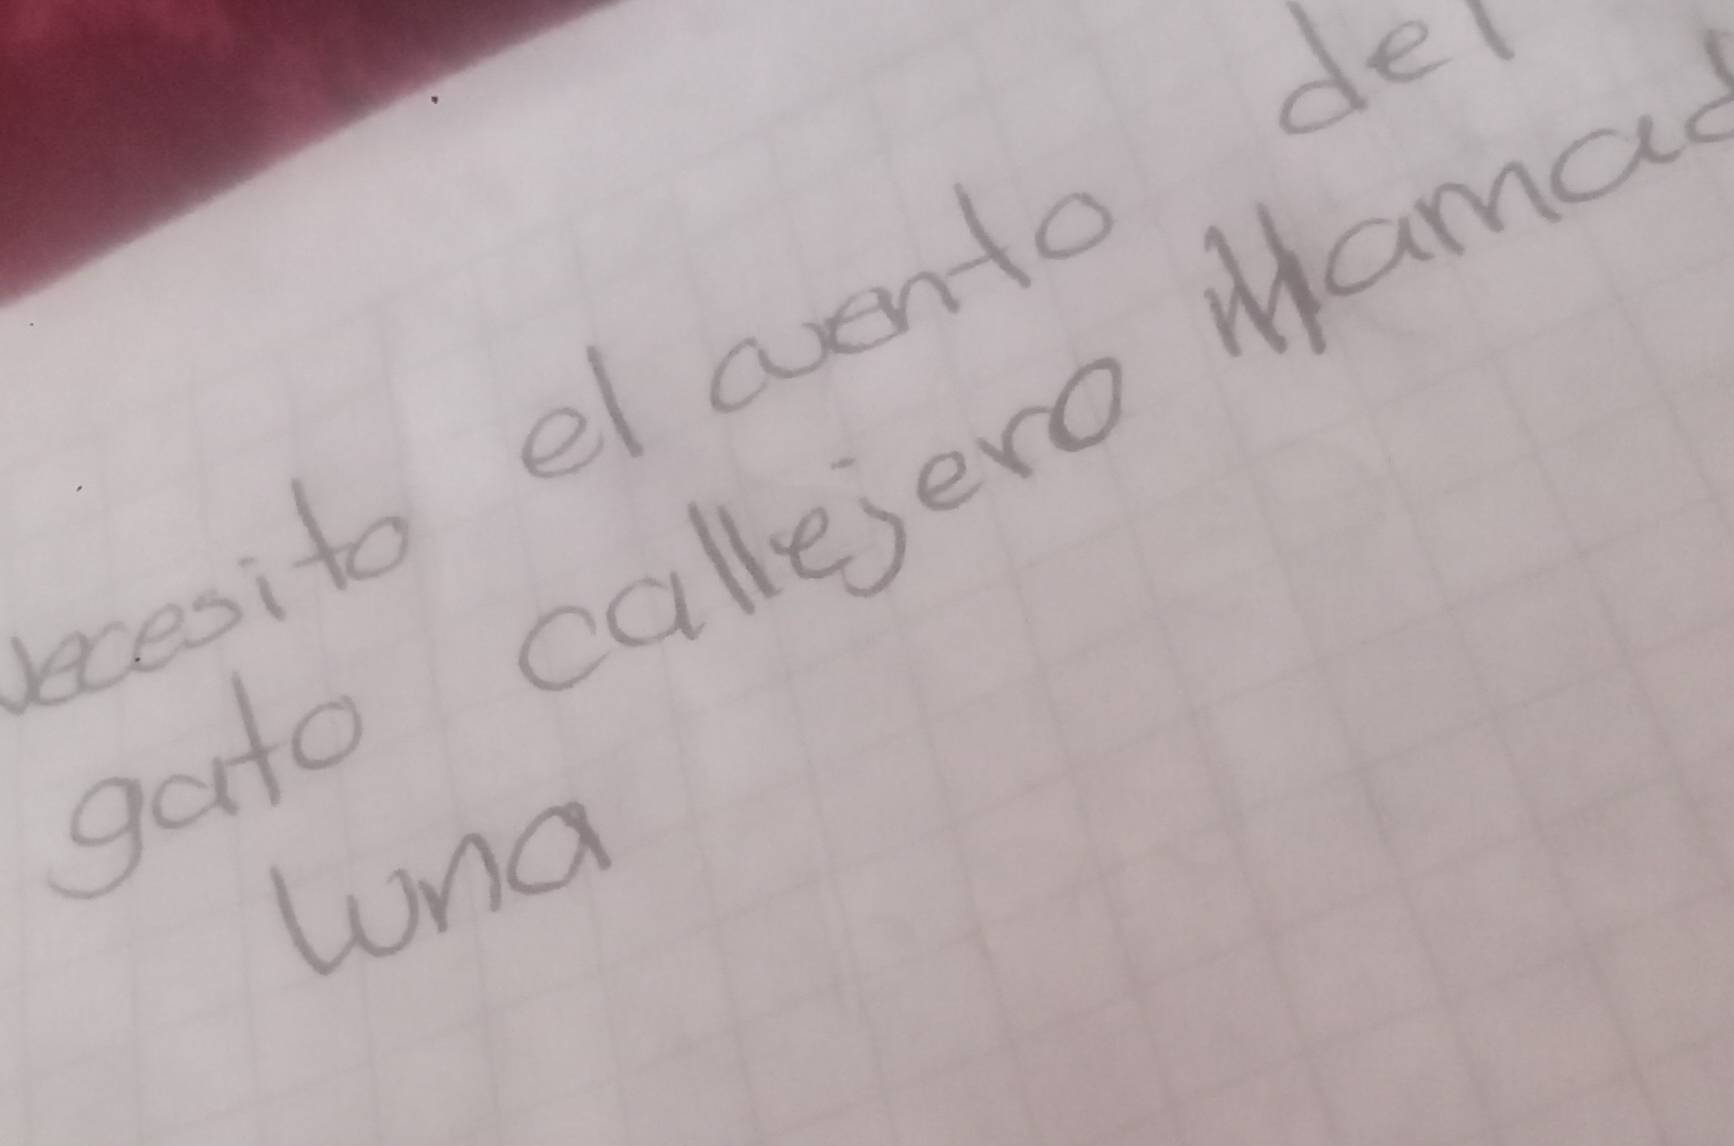 Necesito el cuento del
gato callejero llamad
luna